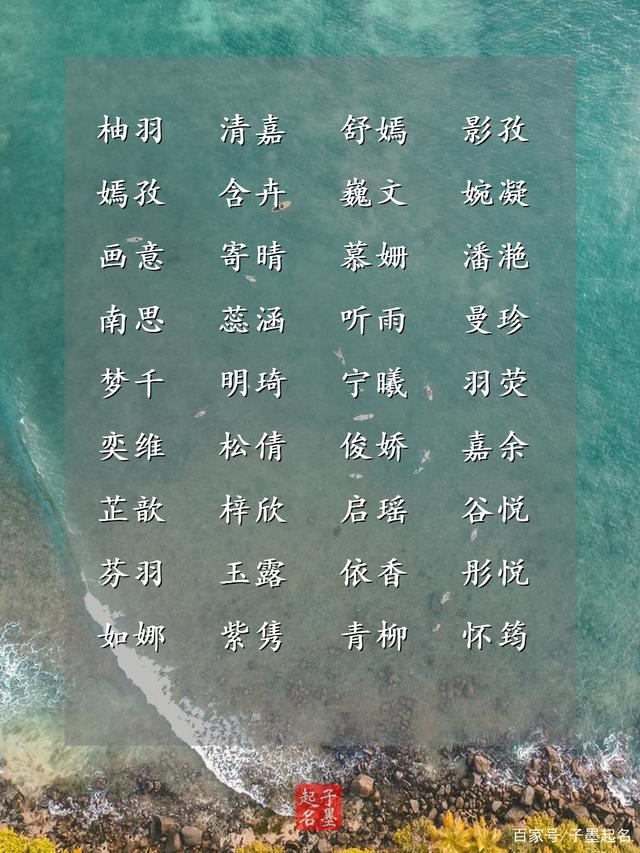 柚羽 清嘉 舒嫣 影孜
嫣孜 含卉 巍文 婉凝
画意 寄晴 慕姗 潘滟
南思 蕊涵 听雨 曼珍
梦千 明琦 宁曦 羽荧
奕维 松倩 俊娇 嘉余
芷歆 梓欣 启瑶 谷悦
芬羽 玉露 依香 彤悦
如娜 紫隽 青柳 怀筠
子墨
起名
百家号/子墨起名